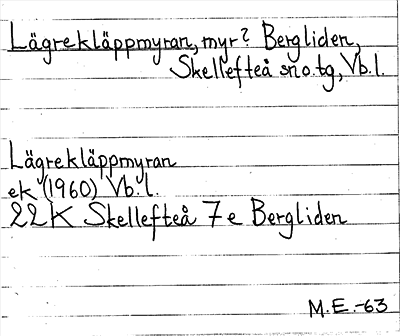 Lägrekläppmyran, myr? Bergliden,
Skellefteå sn o. tg, Vb. l.
Lägrekläppmyran
ek (1960) Vb. l.
22K Skellefteå 7e Bergliden
M.E.-63